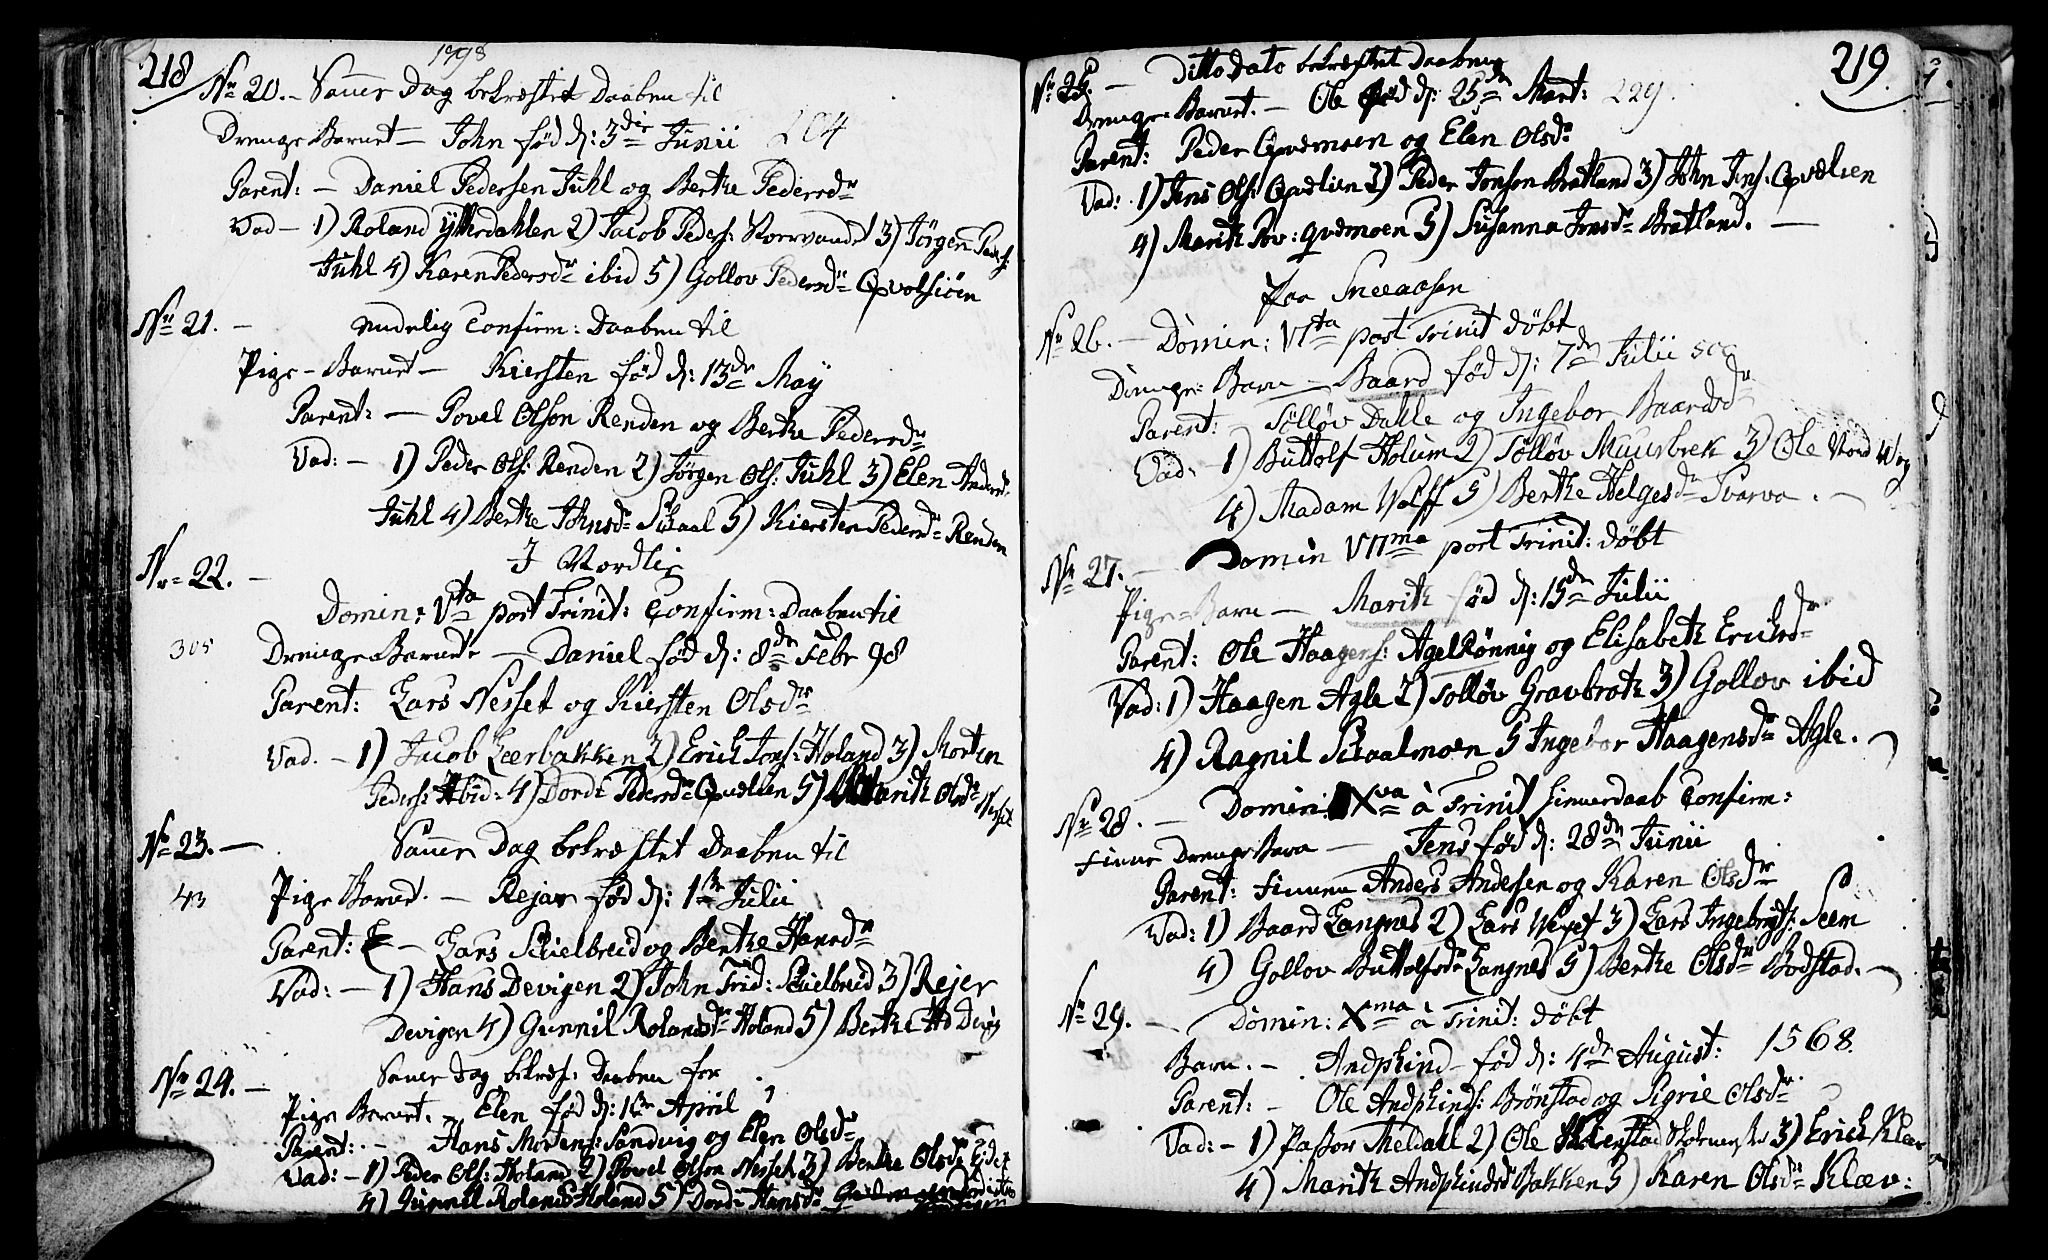 218
1798
No 20. - Samer Dag bekræftet Daaben til
Drenge Barnet - John fød d: 3die Junii 204
Parent: - Daniel Pedersen Juhl og Berthe Pedersdr
Vad - 1) Roland Ytterdahlen 2) Jacob Peders: Storrvand 3) Jörgen Peders:
Juhl 4) Karen Pedersdr ibid 5) Gollov Pedersdr Qvelsiöen
No 21. - Confirm: Daaben til
Pige-Barnet - Kiersten fød d: 13de May
Parent: - Povel Olson Renden og Berthe Pedersdr
Vad: - 1) Peder Ols: Renden 2) Jörgen Ols: Juhl 3) Elen Andersdr
Juhl 4) Berthe Johnsdr Skaal 5) Kiersten Pedersdr Renden
I Nordlie
Nr 22. -
Domin: Vta post Trinit: Confirm: Daaben til
305 Drenge Barnet - Daniel fød d: 8de Febr 98
Parent: Lars Nesset og Kiersten Olsdr
Vad. - 1) Jacob Leerbakken 2) Erich Jons: Holand 3) Morten
Peders: ibid: 4) Dorde Pedersdr Qvelien 5) Marith Olsdr Nesset
No 23. - Samer Dag bekræftet Daaben til
43 Pige Barnet. - Rejar fød d: 1ste Julii
Parent: - Lars Skielbreid og Berthe Hansdr
Vad: - 1) Hans Devigen 2) John Frid: Skielbreid 3) Rejer
Devigen 4) Gunnil Rolandsdr Holand 5) Berthe Devig
No 24. - Samer Dag bekræf: Daaben for
Pige Barnet. - Elen fød d: April
Parent: - Hans Mortens: Sandvig og Elen Olsdr
Vad: - 1) Peder Ols: Holand 2) Povel Olson Nesset 3) Berthe Olsdr
4) Gunnil Rolandsd Holand 5) Dorde Hansdr
219.
No 25. - Ditto Dato bekræftet Daaben
Drenge Barnet. - Ole fød d: 25de Mart: 229.
Parent: Peder Qvemoen og Elen Olsdr
Vad: 1) Jens Ols: Qvelien 2) Peder Jonson Bratland 3) John Jens: Qvelien
4) Marith Pov: Qvemoen 5) Susanna Jensdr Bratland. -
Paa Sneeaasen
No 26. - Domin: VIta post Trinit døbt
Drenge: Barn - Baard fød d: 7de Julii 500
Parent: Sölløv Dahle og Ingebor Baardsdr
Vad: 1) Buttolf Holum 2) Sölløv Muusbek 3) Ole Nord
4) Madam Wolff 5) Berthe Helgesdr Svarva. -
No 27. - Domin VIIma post Trinit: døbt
Pige-Barn - Marith fød d: 15de Julii
Parent: Ole Haagens: Agelrönnig og Elisabeth Ericksdr
Vad: 1) Haagen Agle 2) Solløv Gravbroth 3) Gollov ibid
4) Ragnil Skaalmoen 5 Ingebor Haagensdr Agle.
No 28. - Domin: Xva à Trinit hiemedaab Confirm:
Finne Drenge Barn - Jens fød d: 28de Junii
Parent: Finnen Anders Andersen og Karen Olsdr
Vad: 1) Baard Langnes 2) Lars 3) Lars Ingebrigts: Seem
4) Gollov Buttolfsdr Langnes 5) Berthe Olsdr Bodstad. -
No 29. - Domin: Xma à Trinit: døbt
Barn. - Andphind fød d: 4de August: 1568.
Parent: - Ole Andphinds: Brönstad og Sigrie Olsdr
Vad: - 1) Pastor Meldall 2) Ole Skierstad Skolemester 3) Erich Klæv
4) Marith Andphindsd Bakken 5) Karen Olsdr Klæv: